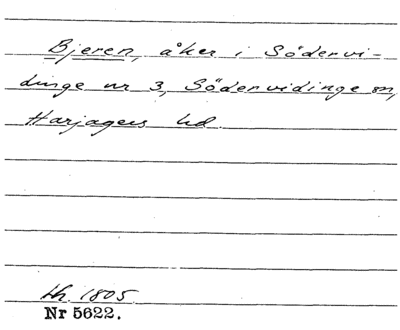 Bjeren, åker i Södervi-
dinge nr 3, Södervidinge sn,
Harjagers hd.
th. 1805
Nr 5622.